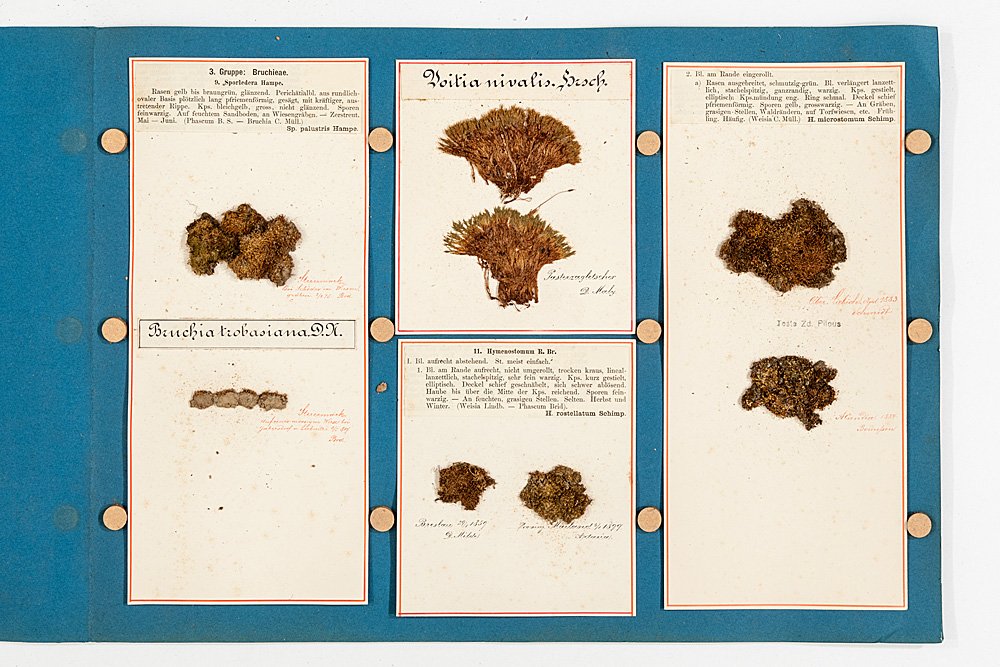 3. Gruppe: Bruchieae.
9. Sporledera Hampe.
Rasen gelb bis braungrün, glänzend. Perichätialbl. aus rundlich-
ovaler Basis plötzlich lang pfriemenförmig, gesägt, mit kräftiger, aus-
tretender Rippe. Kps. bleichgelb, gross, nicht glänzend. Sporen
feinwarzig. Auf feuchtem Sandboden, an Wiesengräben. — Zerstreut.
Mai — Juni. (Phascum B. S. — Bruchia C. Müll.)
Sp. palustris Hampe.
Steiermark
Bruchia trobasiana. D. N.
Steiermark
Voitia nivalis. Hrsch.
Pasterzegletscher
11. Hymenostomum R. Br.
1. Bl. aufrecht abstehend. St. meist einfach.
1. Bl. am Rande aufrecht, nicht umgerollt, trocken kraus, lineal-
lanzettlich, stachelspitzig, sehr fein warzig. Kps. kurz gestielt,
elliptisch. Deckel schief geschnäbelt, sich schwer ablösend.
Haube bis über die Mitte der Kps. reichend. Sporen fein-
warzig. — An feuchten, grasigen Stellen. Selten. Herbst und
Winter. (Weisia Lindb. — Phascum Brid).
H. rostellatum Schimp.
Breslau 1859
D. Milde
Mailand 1899
Artaria
2. Bl. am Rande eingerollt.
a) Rasen ausgebreitet, schmutzig-grün. Bl. verlängert lanzett-
lich, stachelspitzig, ganzrandig, warzig. Kps. gestielt,
elliptisch. Kps.mündung eng. Ring schmal. Deckel schief
pfriemenförmig. Sporen gelb, grosswarzig. — An Gräben,
grasigen Stellen, Waldrändern, auf Torfwiesen, etc. Früh-
ling. Häufig. (Weisia C. Müll.) H. microstomum Schimp.
1883
Schmidt
Teste Zd. Pilous